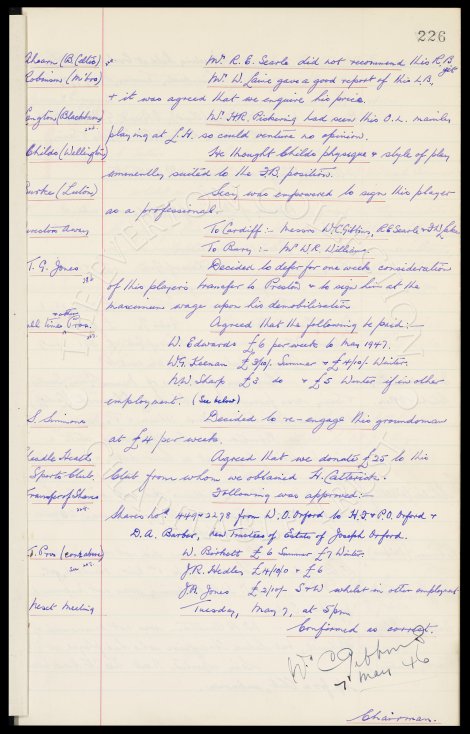 226
Ahearn (B. Celtic) Mr. R. E. Searle did not recommend this R.B. yet
Robinson (M'bro) Mr. W. Laine gave a good report of this L.B.
+ it was agreed that we enquire his price.
Langton (Blackburn) Mr. H.R. Pickering had seen this O.L. mainly
playing at L.H. so could venture no opinion.
Childs (Wellington) We thought Childs physique & style of play
eminently suited to the F.B. position.
Burke (Luton) Secy was empowered to sign this player
as a professional.
Directors Away To Cardiff :- Messrs W.C. Gibbins, R.E. Searle &
To Bury :- Mr W.R. Williams.
T. G. Jones Decided to defer for one week consideration
of this player's transfer to Preston & to sign him at the
maximum wage upon his demobilisation
full time Pros. Agreed that the following be paid:-
W. Edwards £6 per week to May 1947.
W.G. Keenan £3/0/- Summer & £4/10/- Winter.
N.W. Sharp £3 do & £5 Winter if in other
employment. (See below)
S. Simmons Decided to re-engage this groundsman
at £4 per week.
Cheadle Heath Agreed that we donate £25 to this
Sports Club. Club from whom we obtained H. Catterick.
Transfer of Shares Following was approved:-
Shares Nos 449 & 2278 from W. O. Oxford to H.D & P.O. Oxford &
D. A. Barber, new Trustees of Estate of Joseph Oxford.
T. Pros (cont above) W. Birkett £6 Summer £7 Winter
J.R. Hedley £4/10/0 & £6
J.A. Jones £2/10/- S & W whilst in other employment
Next Meeting Tuesday, May 7, at 5pm
Confirmed as correct.
Wm C Gibbins
7th May 46
Chairman.